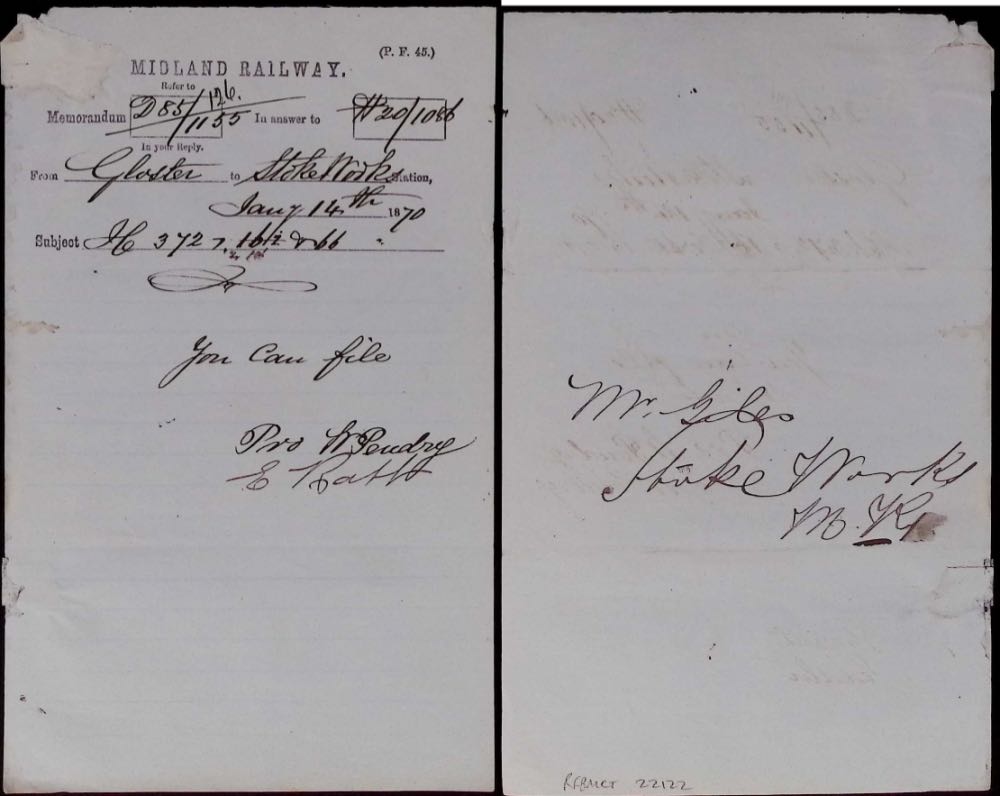 (P. F. 45.)
MIDLAND RAILWAY.
Refer to
Memorandum D85/126. /1155 In answer to H20/1086
In your Reply.
From Gloster to Stoke Works Station,
Jany 14th 1870
Subject 372 66
You can file
Pro W Pendry
E
Mr. Giles
Stoke Works
22122